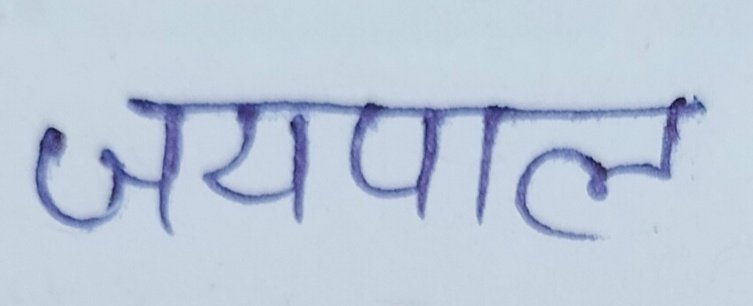 जयपाल